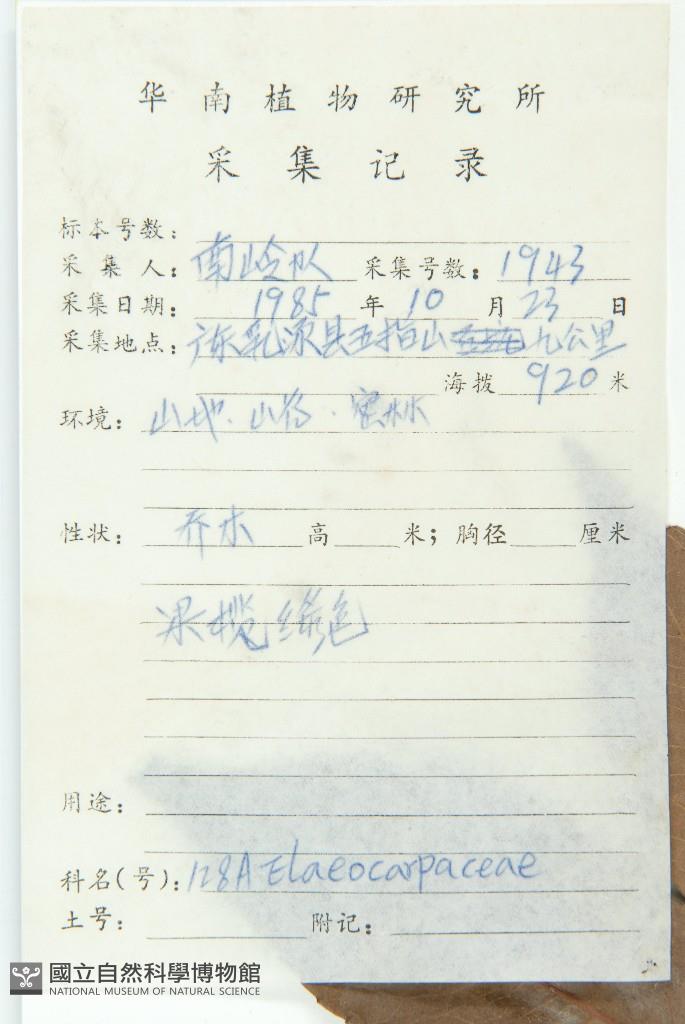 华南植物研究所
采集记录
标本号数:
采集人: 南岭队 采集号数: 1943
采集日期: 1985 年 10 月 23 日
采集地点: 广东乳源县五指山 九公里
海拨 920 米
环境: 山地. 山谷. 密林
性状: 乔木 高 米; 胸径 厘米
果榄绿色
用途:
科名(号): 128A Elaeocarpaceae
土号: 附记:
國立自然科學博物館
NATIONAL MUSEUM OF NATURAL SCIENCE